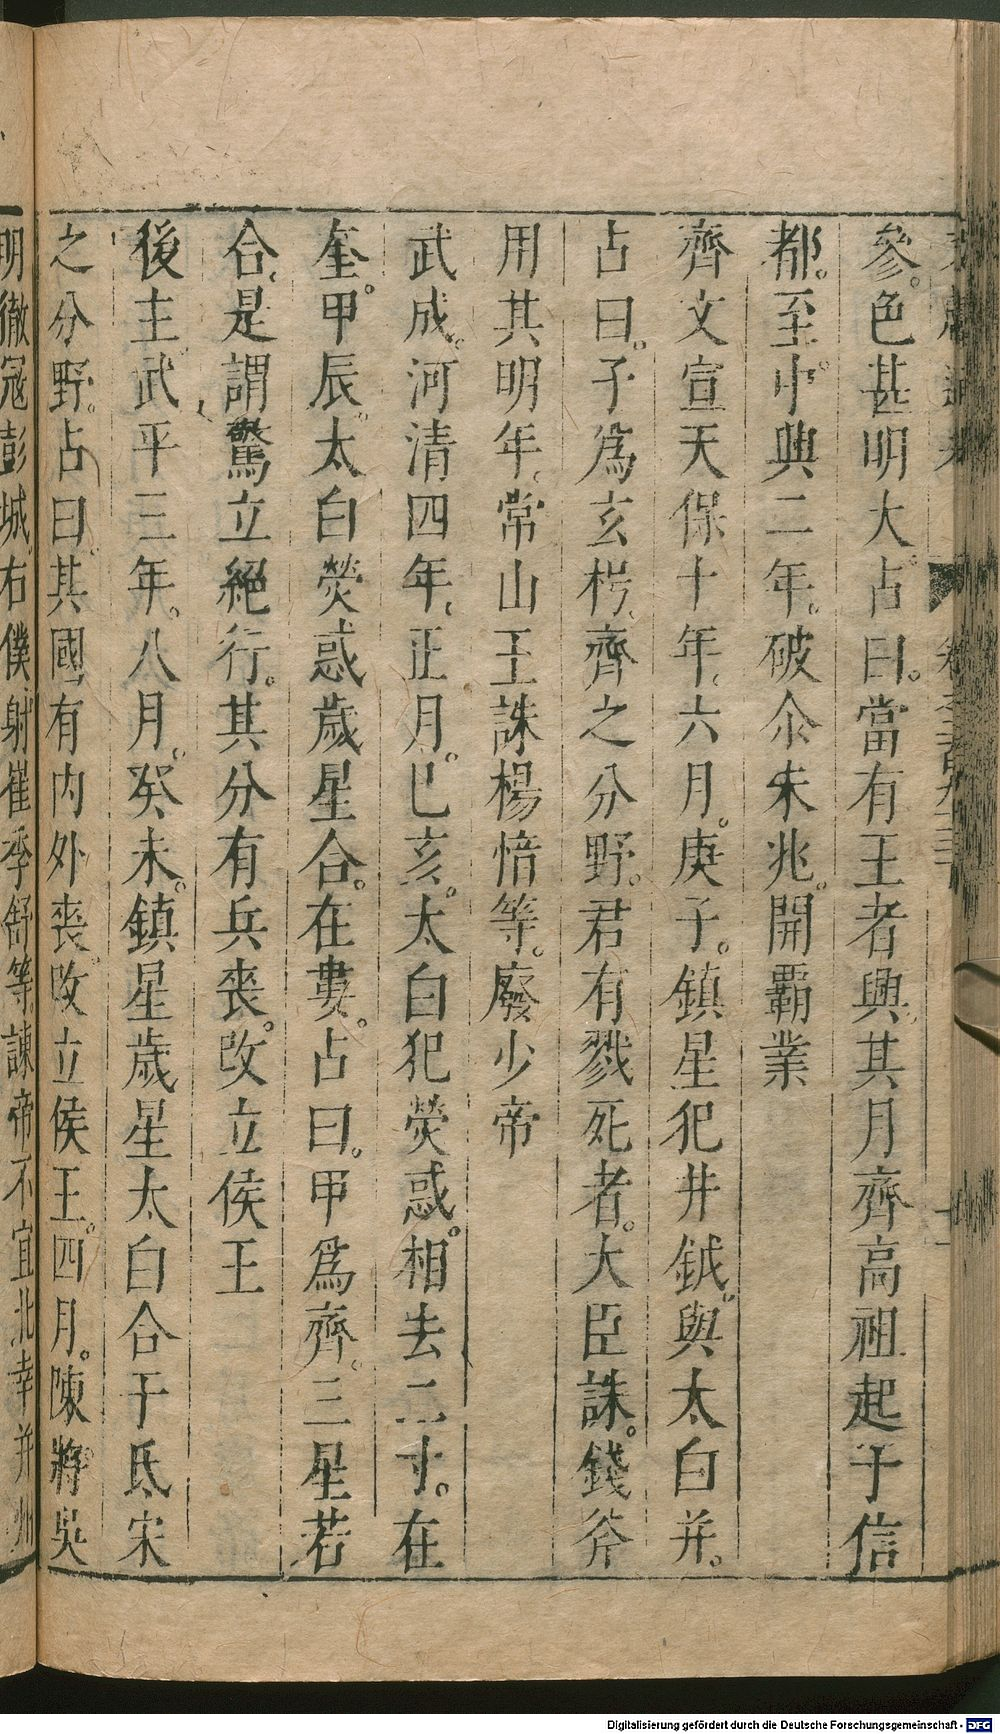 文獻通考
卷之二百九十三
參。色甚明大。占曰。當有王者興。其月齊高祖起于信
都。至中興二年。破尒朱兆。開霸業
齊文宣天保十年。六月。庚子。鎮星犯井鉞。與太白并。
占曰。子爲玄枵。齊之分野。君有戮死者。大臣誅。錢斧
用其明年。常山王誅楊愔等。廢少帝
武成。河清四年。正月。巳亥。太白犯熒惑。相去二寸。在
奎。甲辰。太白熒惑歲星合。在婁。占曰。甲爲齊。三星若
合。是謂驚立絕行。其分有兵喪。改立侯王
後主武平三年。八月。癸未。鎮星歲星太白合于氐宋
之分野。占曰。其國有内外喪。改立侯王。四月。陳將吳
明徹冦彭城右僕射崔季舒等諫帝不宜北幸并州
Digitalisierung gefördert durch die Deutsche Forschungsgemeinschaft - DFG